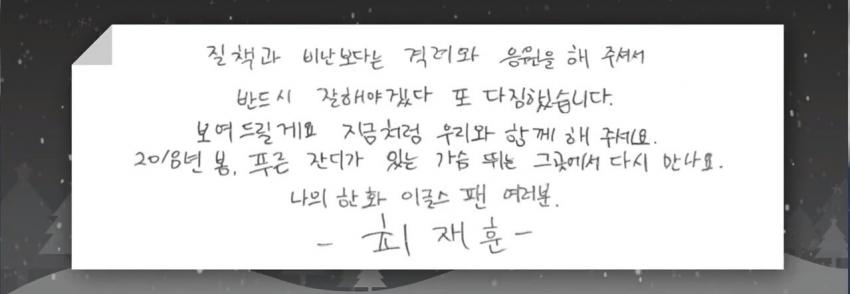 질책과 비난보다는 격려와 응원을 해 주셔서
반드시 잘해야겠다 또 다짐했습니다.
보여드릴게요 지금처럼 우리와 함께 해 주세요.
2018년 봄, 푸른 잔디가 있는 가슴 뛰는 그곳에서 다시 만나요.
나의 한화 이글스 팬 여러분.
- 최재훈 -